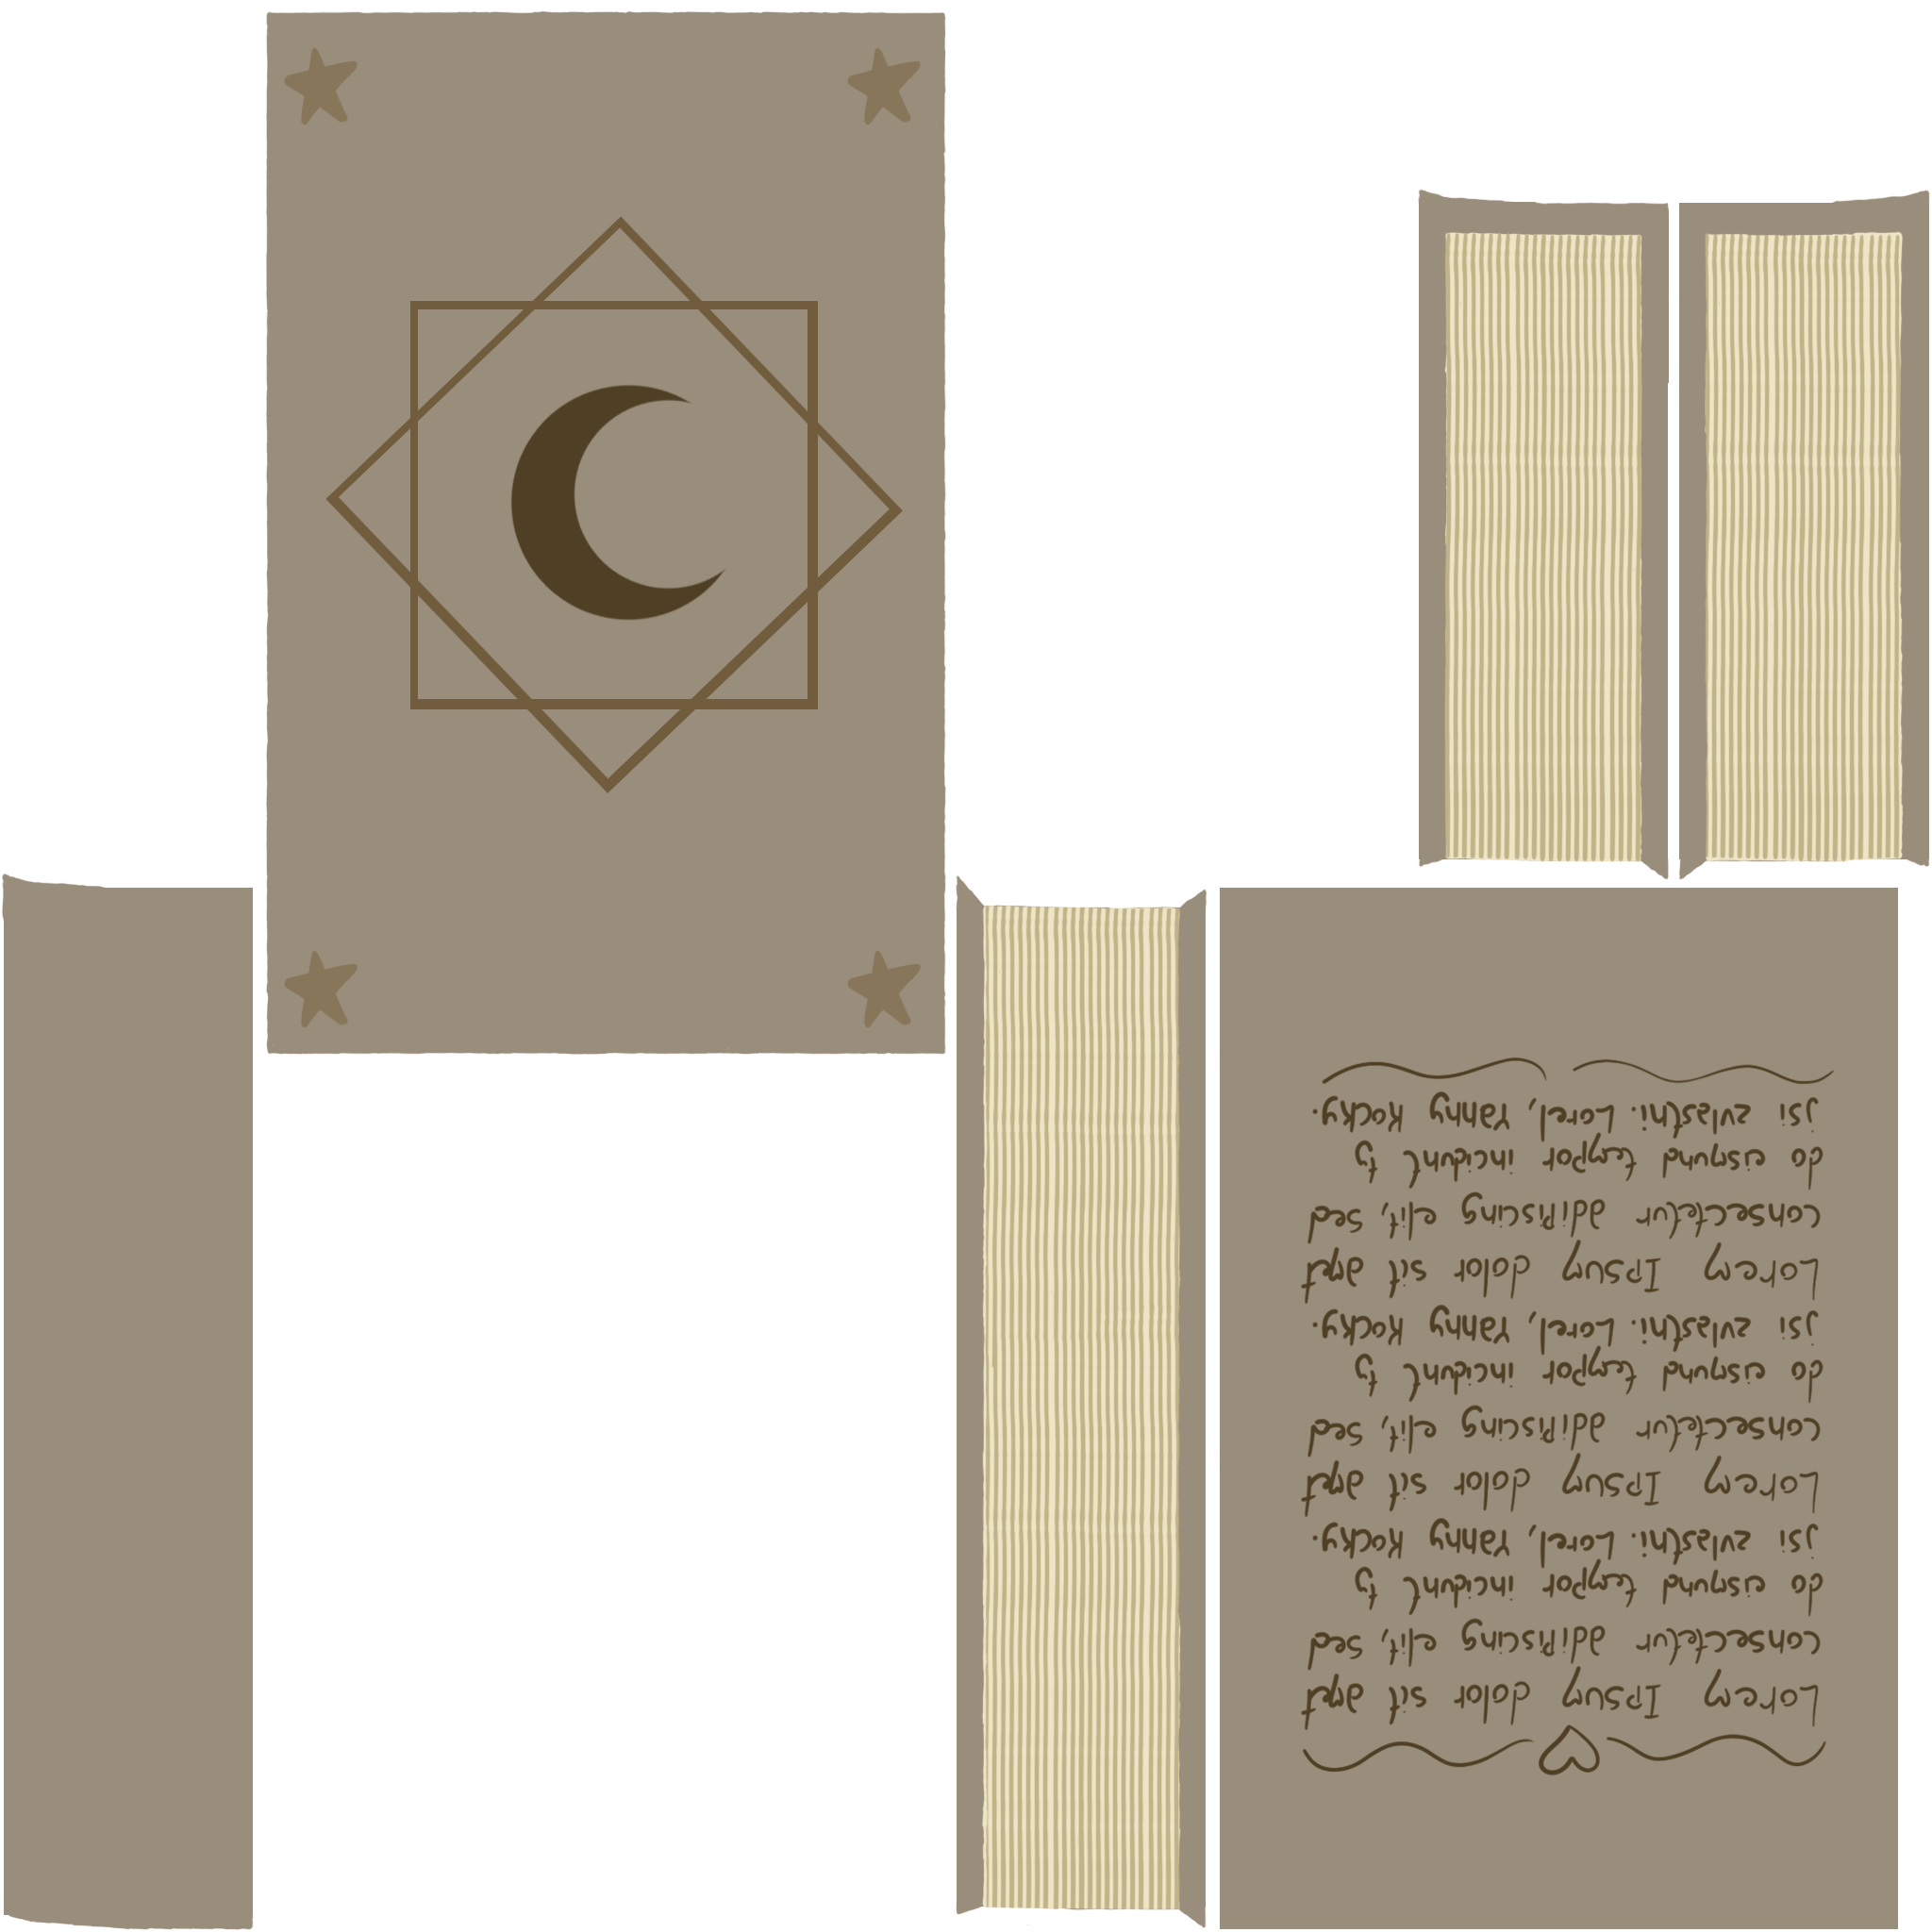 Lorem Ipsum dolor sit amet
consectetur adipiscing elit, sed
do eismund tempor incidunt
jsi zvlastni. Lorel, Yanny kocky.
Lorem Ipsum dolor sit amet
consectetur adipiscing elit, sed
do eismund tempor incidunt
jsi zvlastni. Lorel, Yanny kocky.
Lorem Ipsum dolor sit amet
consectetur adipiscing elit, sed
do eismund tempor incidunt
jsi zvlastni. Lorel, Yanny kocky.